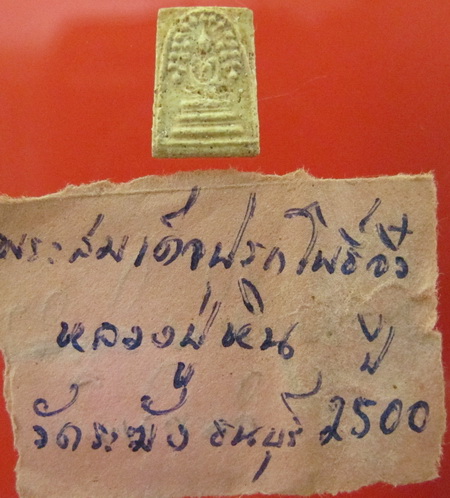 พระสมเด็จปรกโพธิ์จิ๋ว
หลวงปู่หิน ปี
วัดระฆัง ธนบุรี 2500